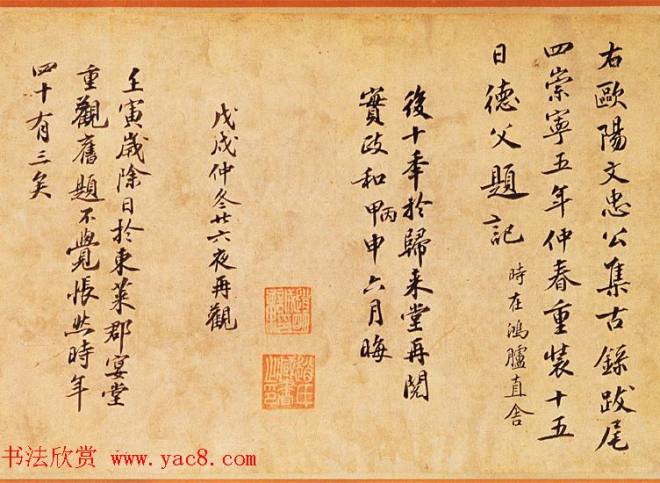 右歐陽文忠公集古錄跋尾
四崇寧五年仲春重裝十五
日德父題記 時在鴻臚直舍
後十秊於歸来堂再閱
實政和甲丙申六月晦
戊戌仲冬廿六夜再觀
壬寅歲除日於東萊郡宴堂
重觀舊題不覺悵然時年
四十有三矣
书法欣赏 www.yac8.com